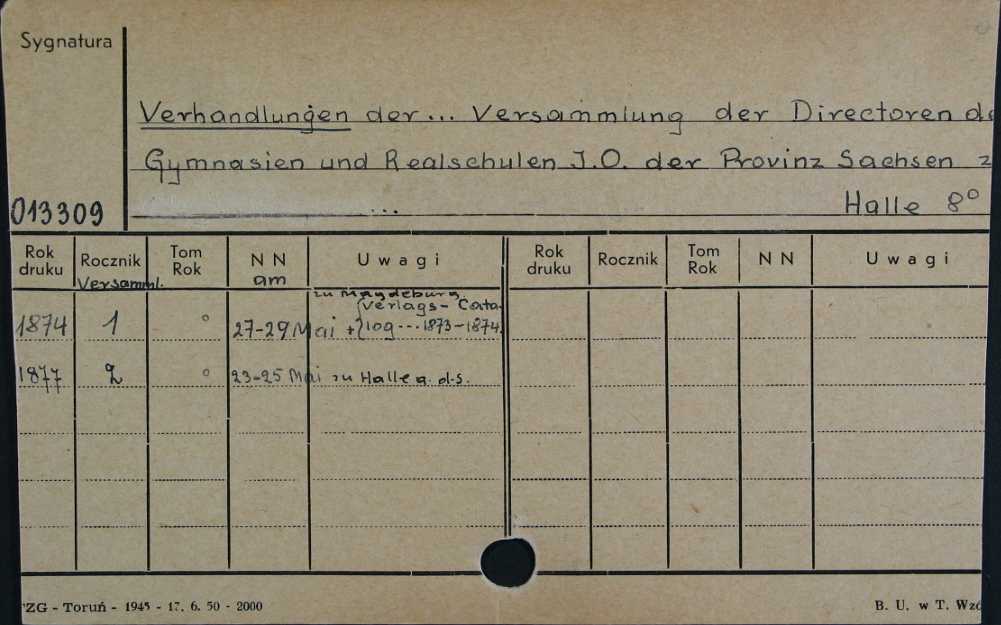 Sygnatura
Verhandlungen der ... Versammlung der Directoren de
Gymnasien und Realschulen I.O. der Provinz Sachsen z
... Halle 8°
013309
Rok druku Rocznik Tom Rok N N U w a g i Rok druku Rocznik Tom Rok N N U w a g i
Versamml. am
zu Magdeburg
1874 1 ° 27-29 Mai + {Verlags-Cata-
log ... 1873-1874.
1877 2 ° 23-25 Mai zu Halle a. d. S.
ZG - Toruń - 1945 - 17. 6. 50 - 2000 B. U. w T. Wzó